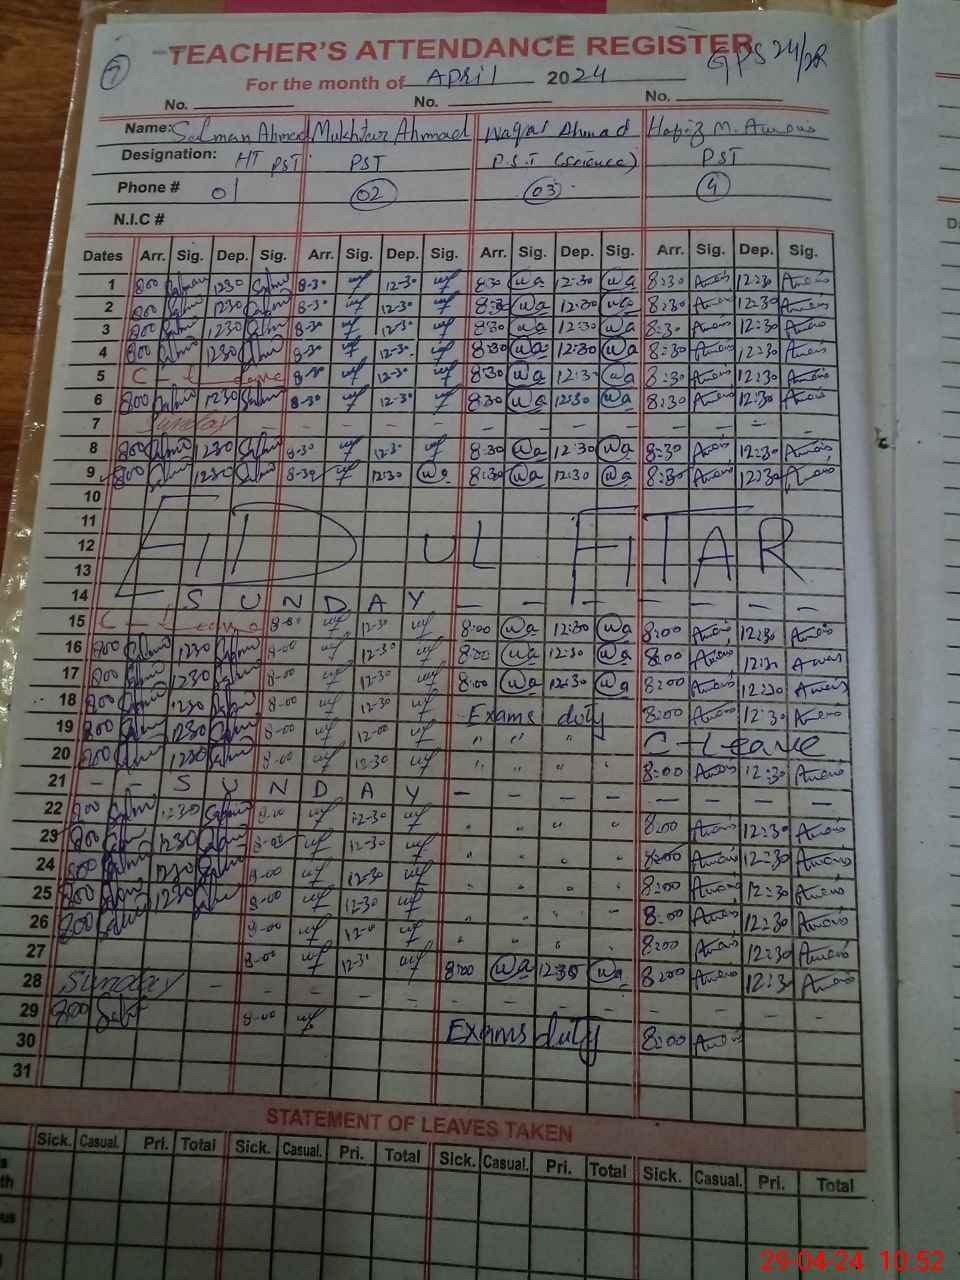 7
TEACHER'S ATTENDANCE REGISTER GPS 24/2R
For the month of April 2024
No. No. No.
Name: Salman Ahmad Mukhtar Ahmad Waqas Ahmad Hafiz M. Awais
Designation: HT PST PST P.S.T (science) PST
Phone # 01 02 03 4
N.I.C #
Dates Arr. Sig. Dep. Sig. Arr. Sig. Dep. Sig. Arr. Sig. Dep. Sig. Arr. Sig. Dep. Sig.
1 800 1230 8-30 12-30 8:30 wa 12:30 wa 8:30 Awais 12:30 Awais
2 800 1230 8-30 12-30 8:30 wa 12:30 wa 8:30 Awais 12:30 Awais
3 800 1230 8-30 12-30 8:30 wa 12:30 wa 8:30 Awais 12:30 Awais
4 800 1230 8-30 12-30 8:30 wa 12:30 wa 8:30 Awais 12:30 Awais
5 C - Leave 8-30 12-30 8:30 wa 12:30 wa 8:30 Awais 12:30 Awais
6 800 1230 8-30 12-30 8:30 wa 12:30 wa 8:30 Awais 12:30 Awais
7 Sunday - - - - - - - - - - - -
8 800 1230 8-30 12-30 8:30 wa 12:30 wa 8:30 Awais 12:30 Awais
9 800 1230 8-30 12:30 wa 8:30 wa 12:30 wa 8:30 Awais 12:30 Awais
10
11
12 EID UL FITAR
13
14 S U N D A Y - - - - - - - -
15 C - Leave 8-00 12-30 8:00 wa 12:30 wa 8:00 Awais 12:30 Awais
16 800 1230 8-00 12-30 8:00 wa 12:30 wa 8:00 Awais 12:30 Awais
17 800 1230 8-00 12-30 8:00 wa 12:30 wa 8:00 Awais 12:30 Awais
18 800 1230 8-00 12-30 Exams duty 8:00 Awais 12:30 Awais
19 800 1230 8-00 12-00 " " " C-Leave
20 800 1230 8-00 12-30 " " " " 8:00 Awais 12:30 Awais
21 - - S U N D A Y - - - - - - - -
22 800 1230 8-00 12-30 " " " " 8:00 Awais 12:30 Awais
23 800 1230 8-00 12-30 " " " " 8:00 Awais 12:30 Awais
24 800 1230 8-00 12-30 " " " " 8:00 Awais 12:30 Awais
25 800 1230 8-00 12-30 " " " " 8:00 Awais 12:30 Awais
26 800 8-00 " " " " 8:00 Awais 12:30 Awais
27 8-00 8:00 wa 12:30 wa 8:00 Awais Awais
28 Sunday - - - - - - - - - - - -
29 800 8-00 Exams duty 8:00 Awais
30
31
STATEMENT OF LEAVES TAKEN
Sick. Casual. Pri. Total Sick. Casual. Pri. Total Sick. Casual. Pri. Total Sick. Casual. Pri. Total
29-04-24 10:52